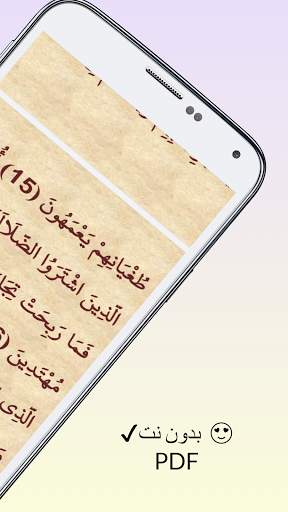 طُغْيَانِهِمْ يَعْمَهُونَ (15)
الَّذِينَ اشْتَرَوُا
فَمَا رَبِحَتْ
مُهْتَدِينَ
الَّذِى
بدون نت✔
PDF